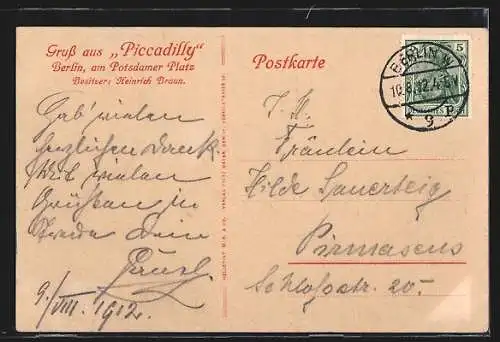 Gruß aus „Piccadilly"
Berlin, am Potsdamer Platz
Besitzer: Heinrich Braun.
Postkarte
5
BERLIN W
10.8.12.4-5N
* 9 P
Hab' vielen
herzlichen Dank.
Mit vielen
Grüßen in
Treue Dein
9./VIII. 1912.
Fräulein
Hilde Sauersteig
Pirmasens
Schloßstr. 20.-